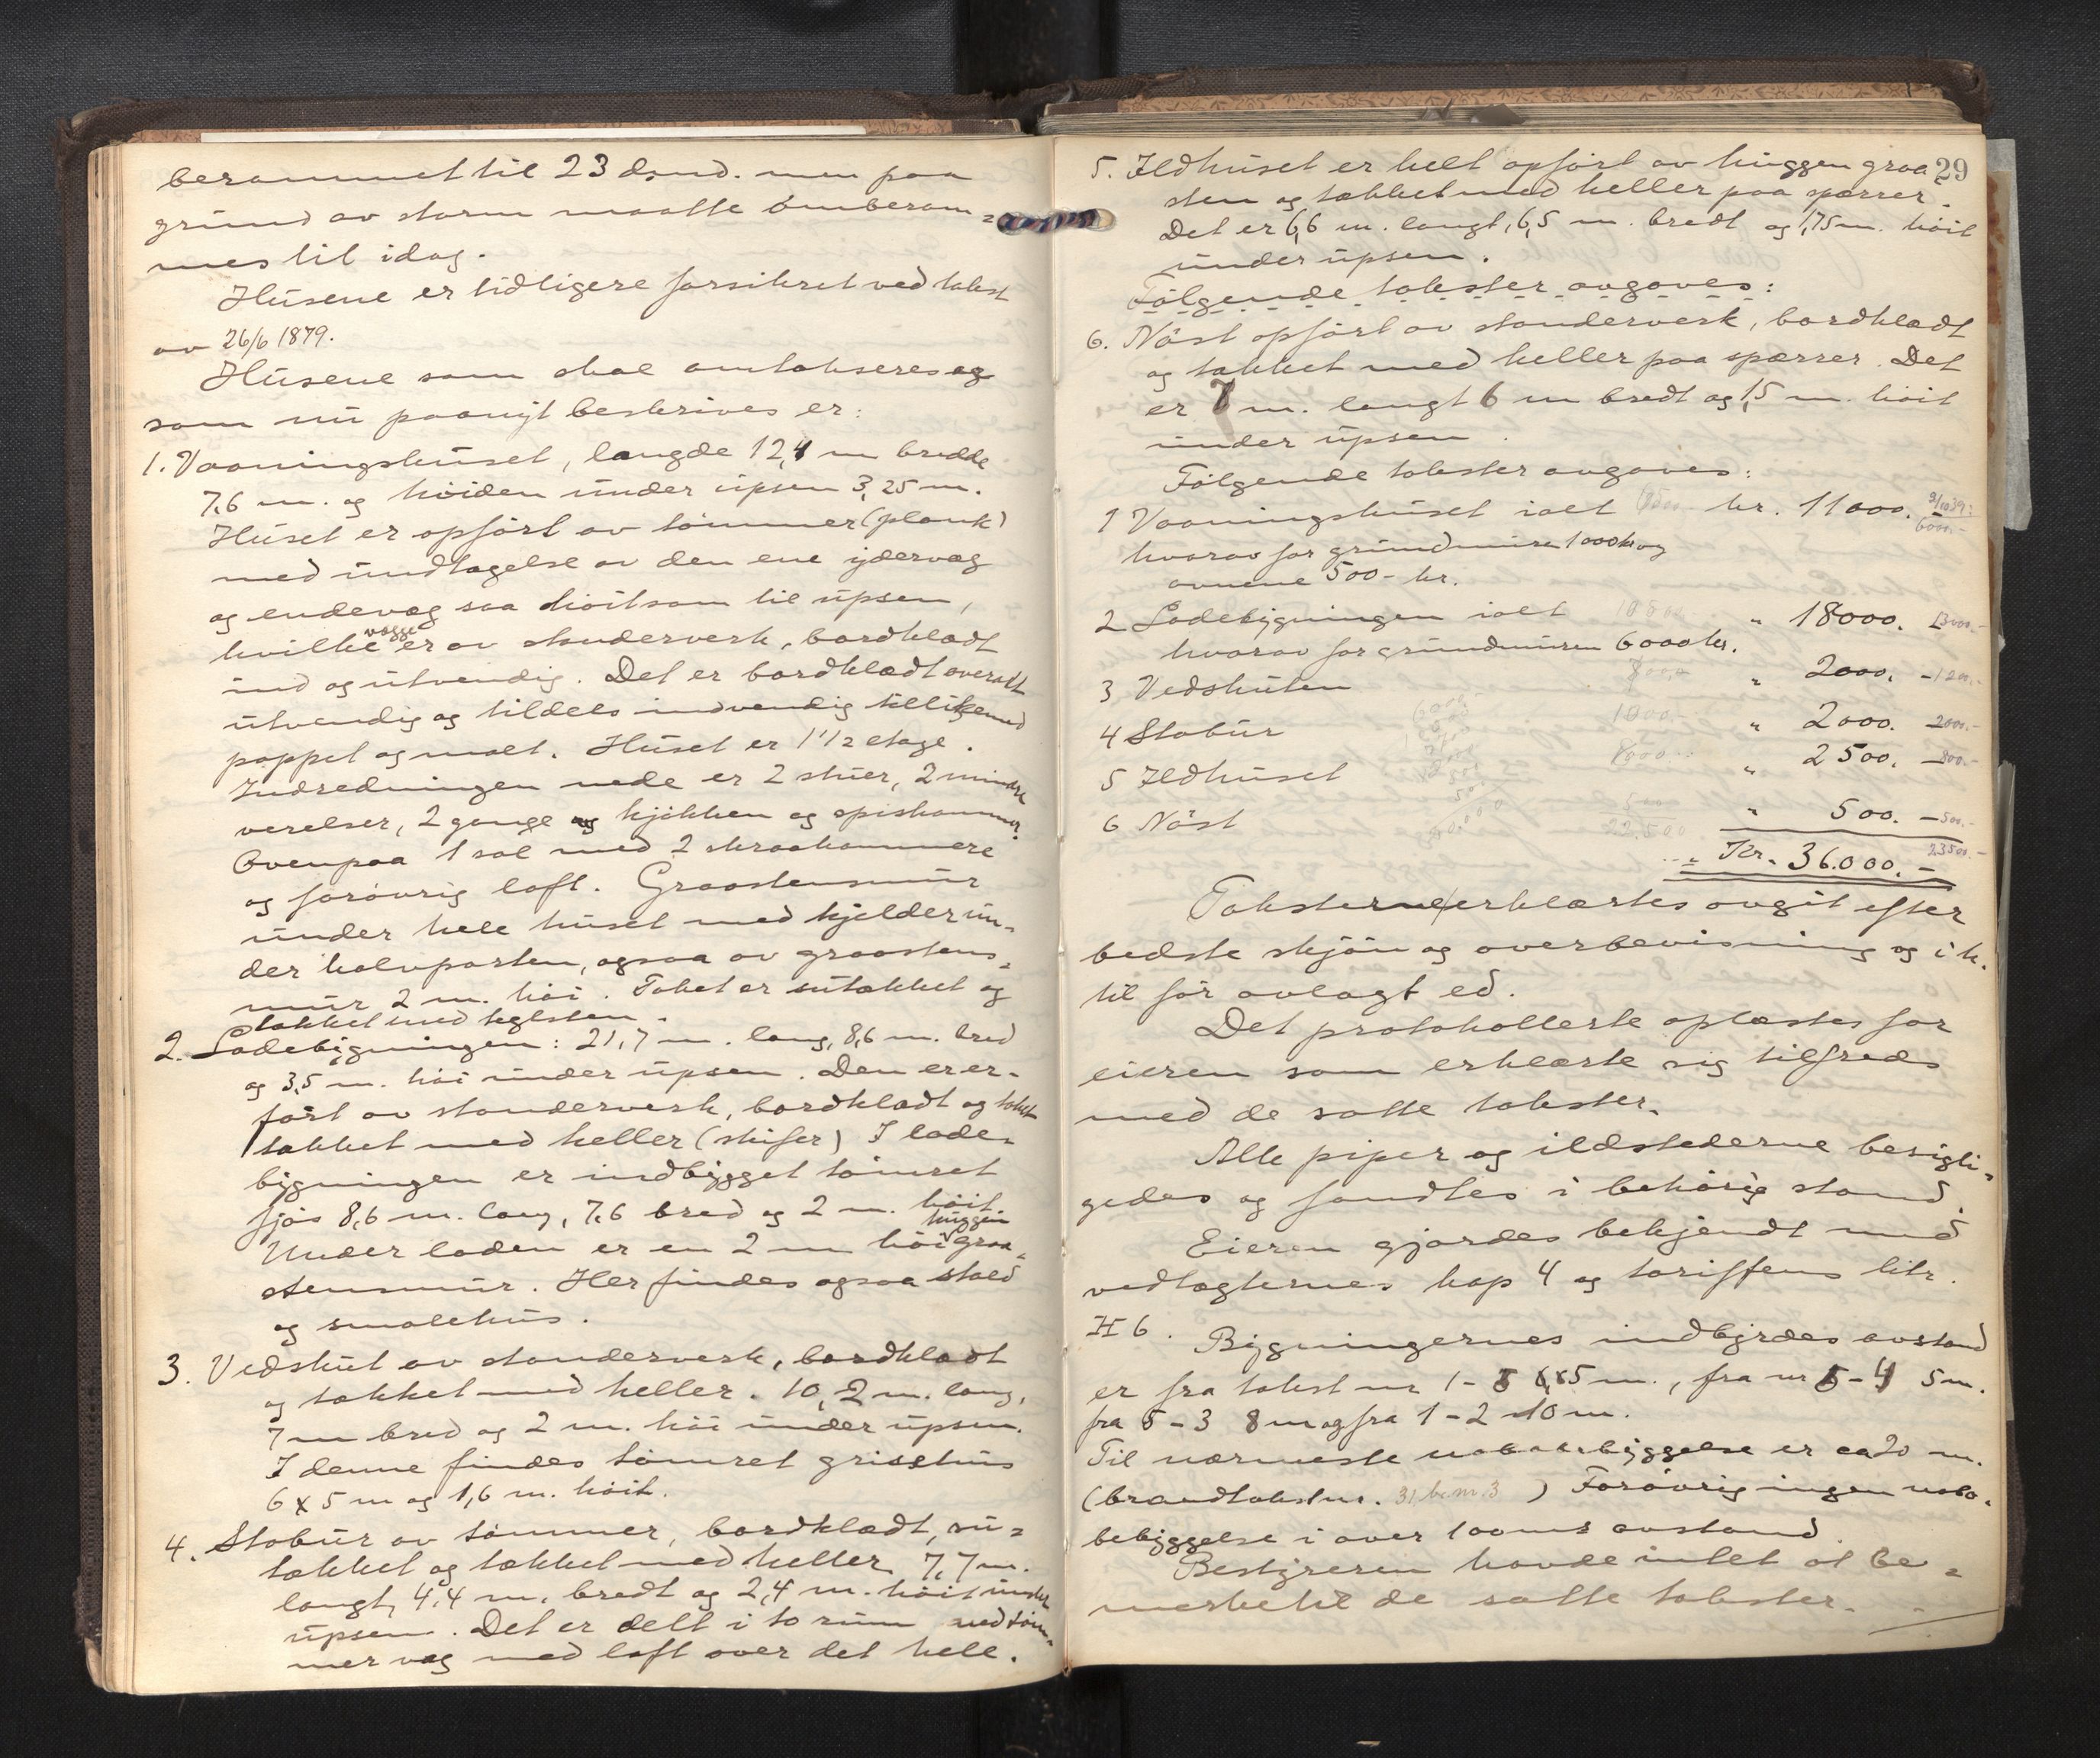 berammet til 23 dsmd. men paa
grund av storm maatte omberam=
mes til idag.
Husene er tidligere forsikret ved takst
av 26/6 1879.
Husene som skal omtakseres og
som nu paanyt beskrives er:
1. Vaaningshuset, længde 12,4 m bredde
7,6 m. og høiden under upsen 3,25 m.
Huset er opført av tømmer (plank)
med undtagelse av den ene ydervæg
og endevæg saa høit som til upsen,
hvilke vægge er av stenderverk, bordklædt
ind og utvendig. Det er bordklædt overalt
utvendig og tildels indvendig tillikemed
pappet og malt. Huset er 1 1/2 etage.
Indredningen nede er 2 stuer, 2 mindre
værelser, 2 gange og kjøkken og spiskammer.
Ovenpaa 1 sal med 2 skraakammere
og forøvrig loft. Graastensmur
under hele huset med kjelder un-
der halvparten, ogsaa av graastens=
mur 2 m. høi. Taket er sutækket og
tækket med teglsten.
2. Ladebygningen: 21,7 m. lang, 8,6 m. bred
og 3,5 m. høi under upsen. Den er er-
ført av stenderverk, bordklædt og taket
tækket med heller (skifer) I lade-
bygningen er indbygget tømret
fjøs 8,6 m. lang, 7,6 bred og 2 m. høit.
Under laden er en 2 m høi huggen graa=
stensmur. Her findes ogsaa stald
og smalehus.
3. Vedskut av stenderverk, bordklædt
og tækket med heller. 10,2 m. lang,
7 m bred og 2 m. høi under upsen.
I denne findes tømret grisehus
6 x 5 m og 1,6 m. høit.
4. Stabur av tømmer, bordklædt, su=
tækket og tækket med heller 7,7 m.
langt, 4,4 m. bredt og 2,4 m. høit under
upsen. Det er delt i to rum ved tøm=
mer væg med loft over det hele.
29
5. Ildhuset er helt opført av huggen graa=
sten og tækket med heller paa spærrer.
Det er 6,6 m. langt, 6,5 m. bredt og 1,75 m. høit
under upsen.
Følgende takster avgaves:
6. Nøst opført av stenderverk, bordklædt
og tækket med heller paa spærrer. Det
er 7 m. langt 6 m bredt og 1,5 m. høit
under upsen.
Følgende takster avgaves:
1 Vaaningshuset ialt kr. 11000. 6000.-
hvorav for grundmuren 1000 kr og
ovnene 500- kr.
2 Ladebygningen ialt " 18000. 13000.-
hvorav for grundmuren 6000 kr.
3 Vedskuten " 2000. -1200.-
4 Stabur 1000.- " 2000. 2000.-
5 Ildhuset " 2500. -800.-
6 Nøst 500 " 500. -500.-
22.500 Kr. 36.000.- 23500.-
Taksterne erklærtes avgit efter
bedste skjøn og overbevisning og i h.
til før avlagt ed.
Det protokollerte oplæstes for
eieren som erklærte sig tilfreds
med de satte takster.
Alle piper og ildstederne besigti=
gedes og fandtes i behørig stand.
Eieren gjordes bekjendt med
vedtægternes kap 4 og tariffens litr.
H 6.
Bygningernes indbyrdes avstand
er fra takst nr 1-5 m., fra nr 5-4 5 m.
fra 5-3 8 m og fra 1-2 10 m.
Til nærmeste nabobebyggelse er ca 20 m.
(brandtakstnr. 31, br. nr. 3 ) Forøvrig ingen nabo-
bebyggelse i over 100 ms avstand.
Bestyreren havde intet at be=
merke til de satte takster.